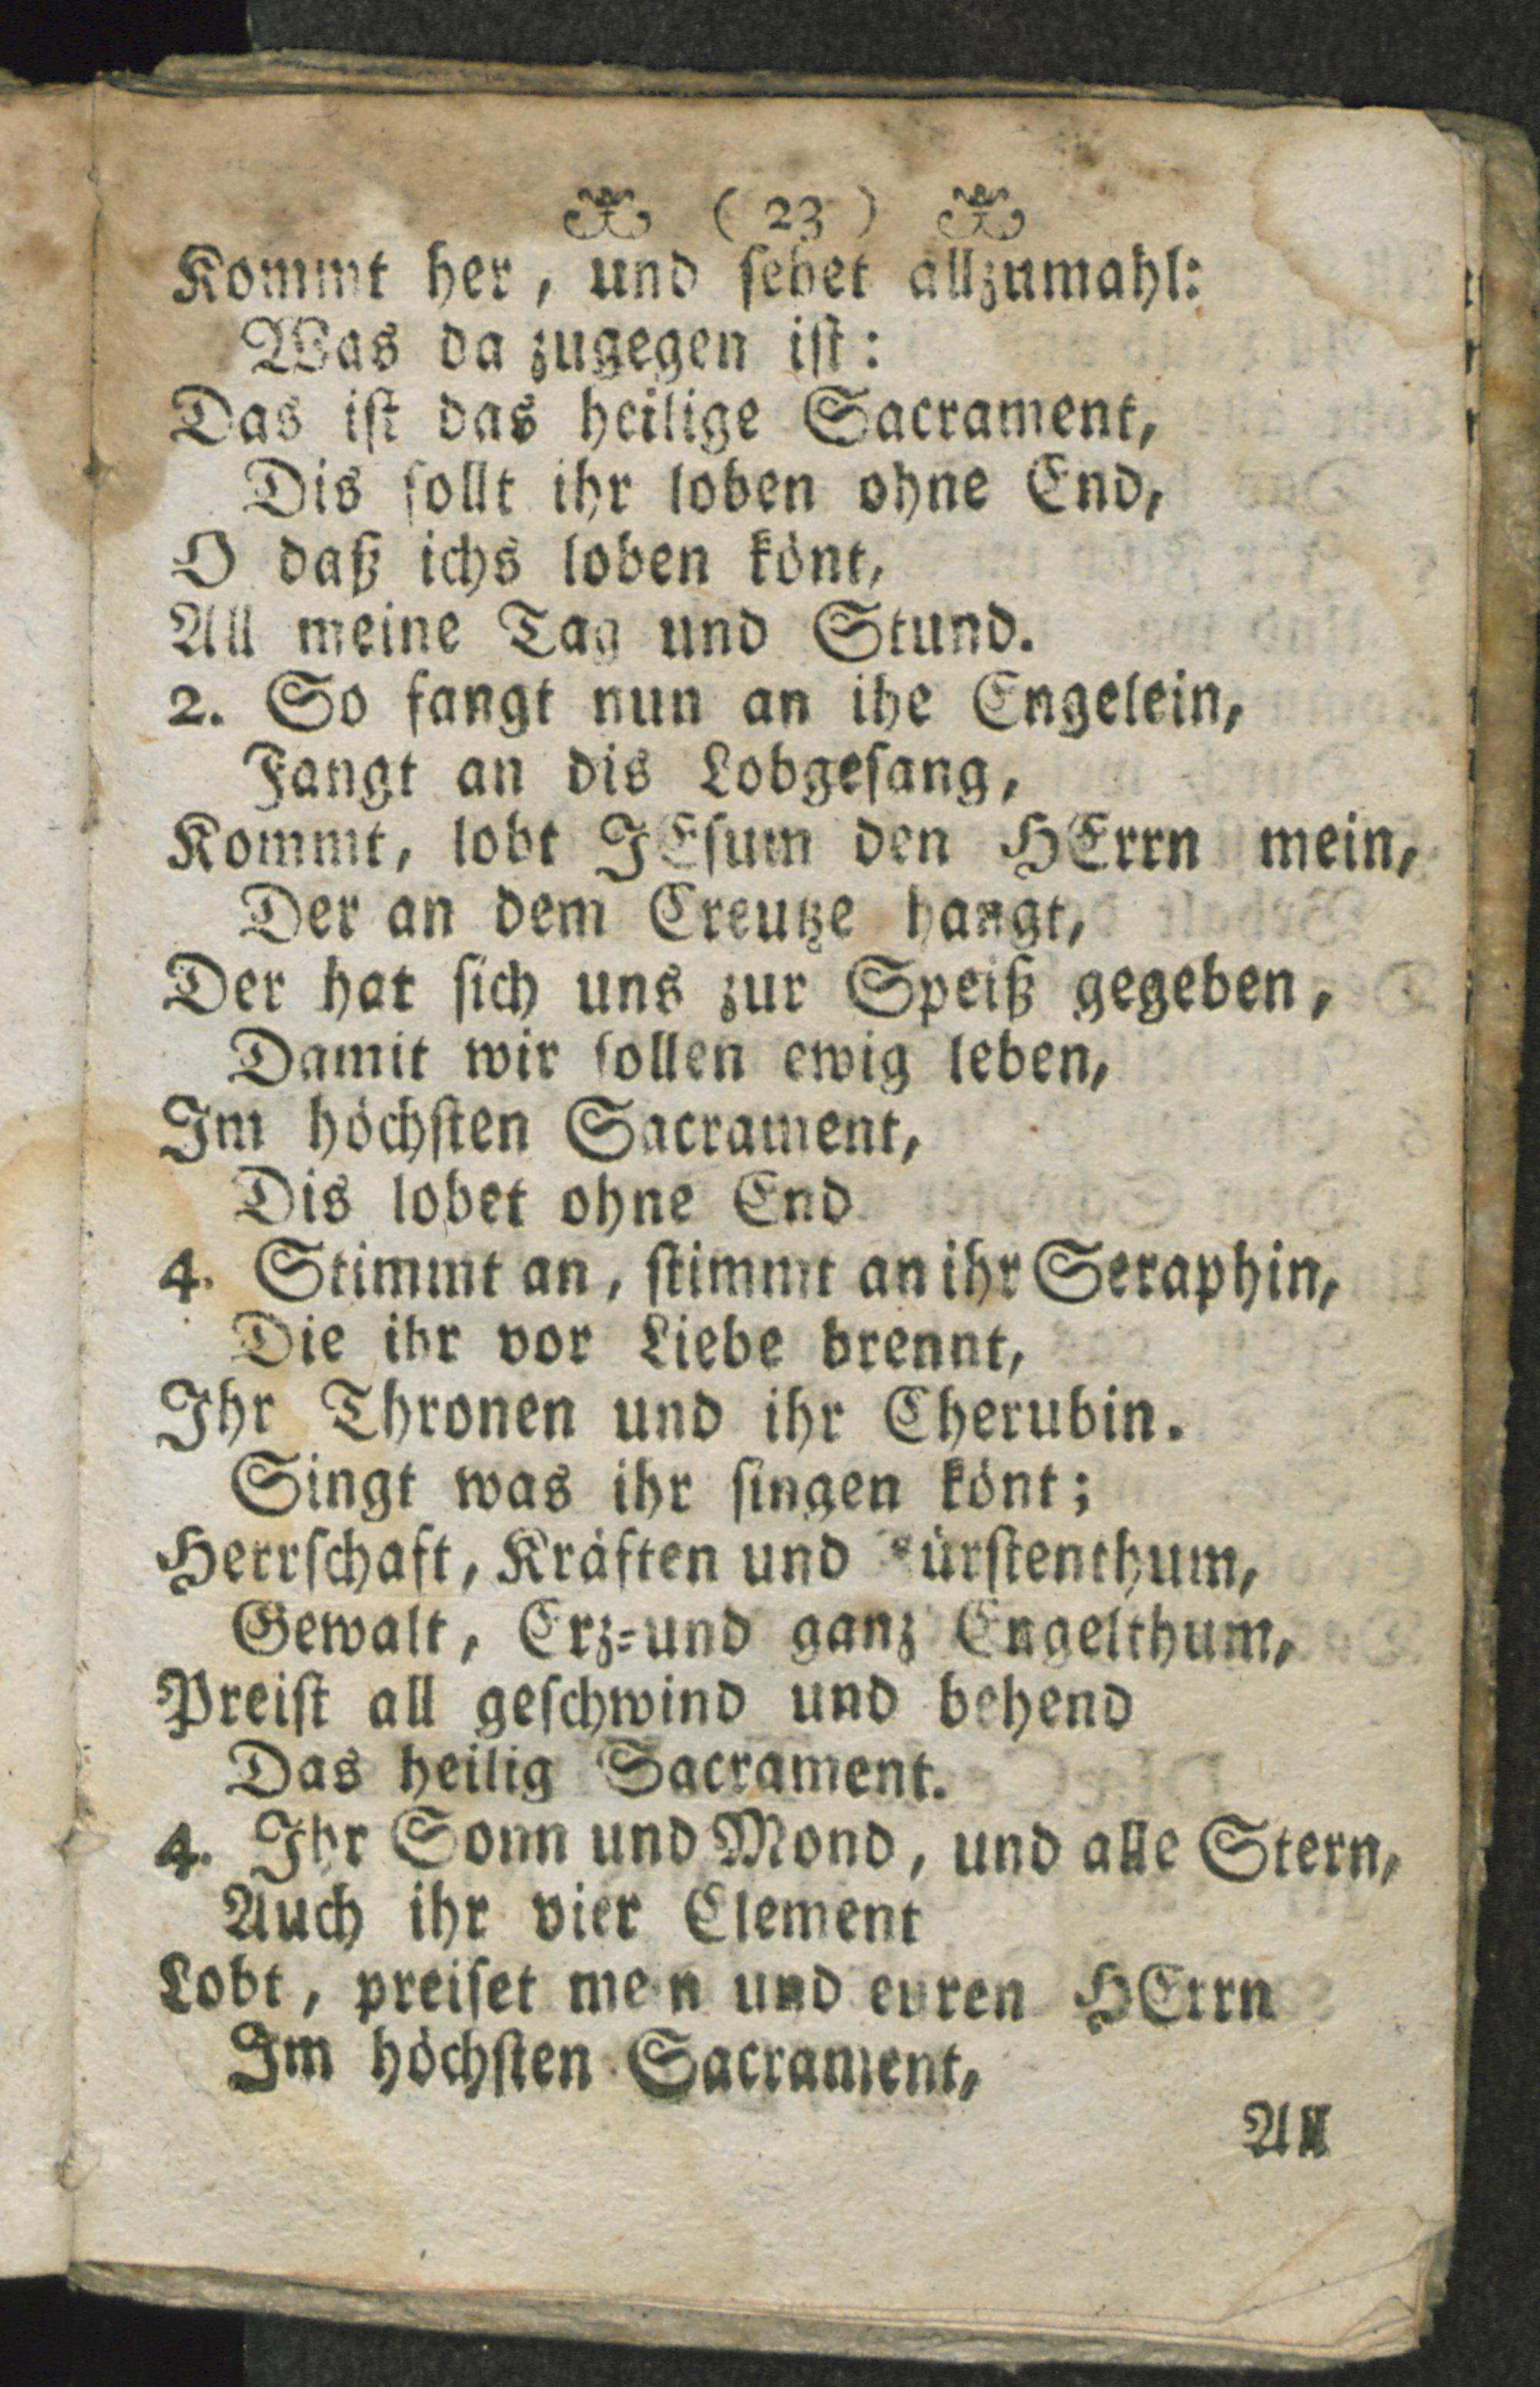 ( 23 )
Kommt her, und sehet allzumahl:
Was da zugegen ist:
Das ist das heilige Sacrament,
Dis sollt ihr loben ohne End,
O daß ichs loben könt,
All meine Tag und Stund.
2. So fangt nun an ihe Engelein,
Fangt an dis Lobgesang,
Kommt, lobt JEsum den HErrn mein,
Der an dem Creutze hangt,
Der hat sich uns zur Speiß gegeben,
Damit wir sollen ewig leben,
Im höchsten Sacrament,
Dis lobet ohne End
4. Stimmt an, stimmt an ihr Seraphin,
Die ihr vor Liebe brennt,
Ihr Thronen und ihr Cherubin.
Singt was ihr singen könt;
Herrschaft, Kräften und Fürstenthum,
Gewalt, Erz-und ganz Engelthum,
Preist all geschwind und behend
Das heilig Sacrament.
4. Ihr Sonn und Mond, und alle Stern,
Auch ihr vier Element
Lobt, preiset mein und euren HErrn
Im höchsten Sacrament,
All